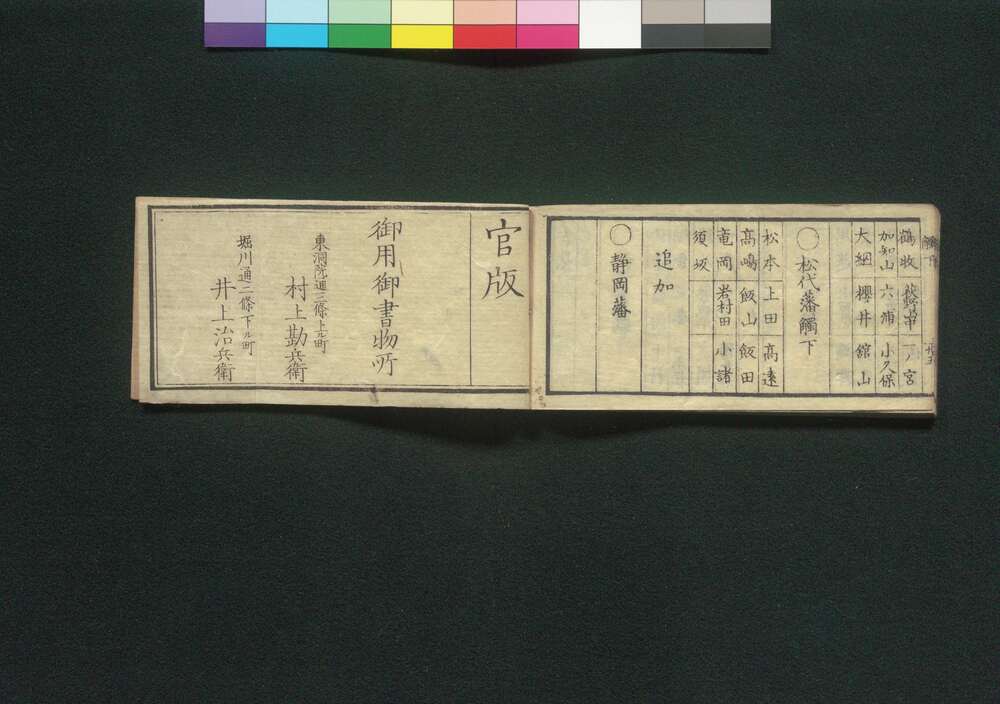 鶴牧 菊間 一ノ宮
加知山 六浦 小久保
大網 櫻井 舘山
○松代藩觸下
松本 上田 高遠
高嶋 飯山 飯田
竜岡 岩村田 小諸
須坂
追加
○静岡藩
官版
御用御書物所
東洞院通三條上ル町
村上勘兵衛
堀川通二條下ル町
井上治兵衛